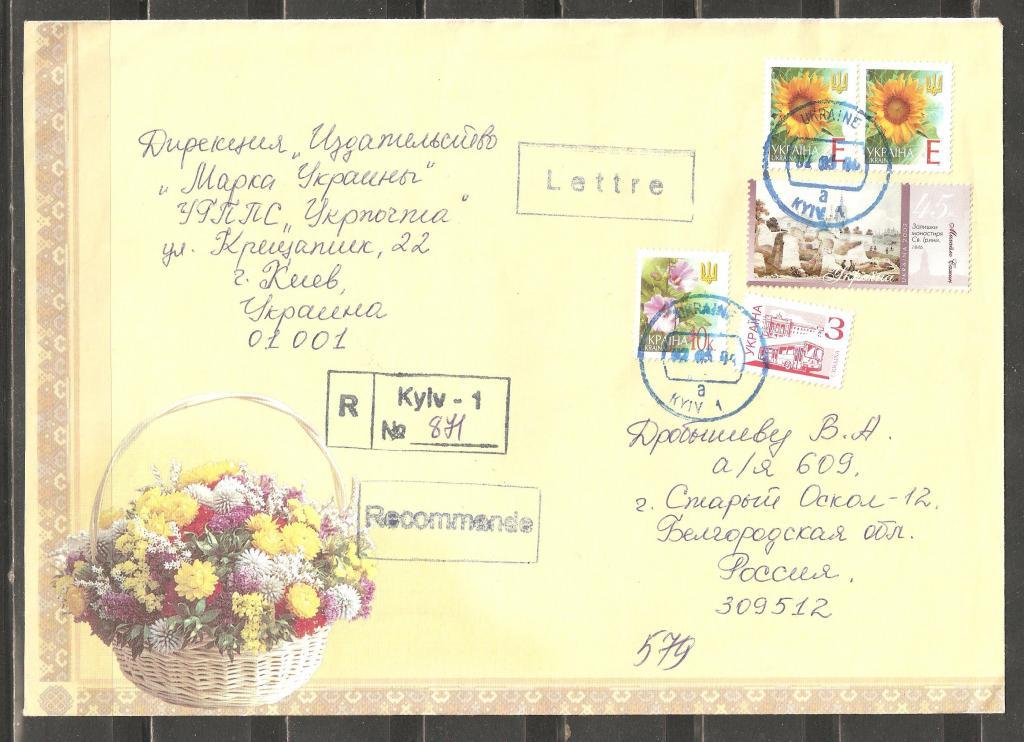 Дирекция „Издательство
„Марка Украины"
УГППС „Укрпочта"
ул. Крещатик, 22
г. Киев,
Украина
01001
Lettre
УКРАЇНА
UKRAINE
E
УКРАЇНА
E
UKRAINE
02 03 04
а
KYIV 1
45к
Залишки
монастиря
Св. Ірини.
1846
UKRAINE 2003
Україна
КРАЇНА
10к
UKRAINE
02 03 04
а
KYIV 1
УКРАЇНА
З
R
Kyiv - 1
№ 871
Recommande
Дробышеву В.А.
а/я 609,
г. Старый Оскол-12.
Белгородская обл.
Россия,
309512
579